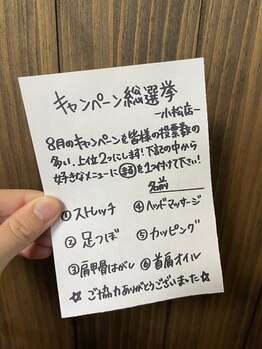 キャンペーン総選挙
～小松店～
8月のキャンペーンを皆様の投票数の
多い、上位2つにします！下記の中から
好きなメニューに○を1つ付けて下さい！
名前
①ストレッチ ④ヘッドマッサージ
②足つぼ ⑤カッピング
③肩甲骨はがし ⑥首肩オイル
☆ご協力ありがとうございました☆